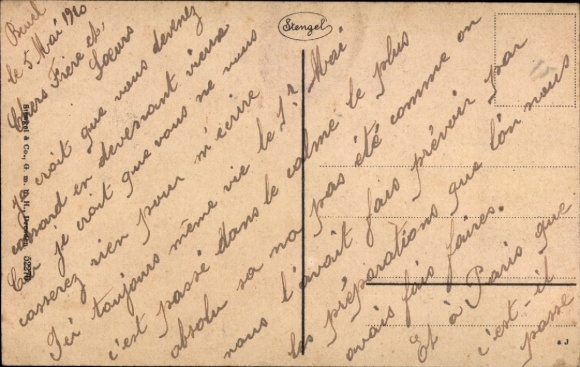 Stengel
Bruel
le 5 Mai 1920
Chers Frère et,
Soeurs
Je croit que vous devenez
cossard en devenant vieux
Car je croit que vous ne vous
casserez rien pour m'écrire
Ici toujours même vie le 1er Mai
c'est passé dans le calme le plus
absolu sa na pas été comme on
nous l'avait fais prévoir par
les préparations que l'on nous
avais fais faires.
Et à Paris que
c'est-il
passé
Stengel & Co., G. m. b. H., Dresden
& J